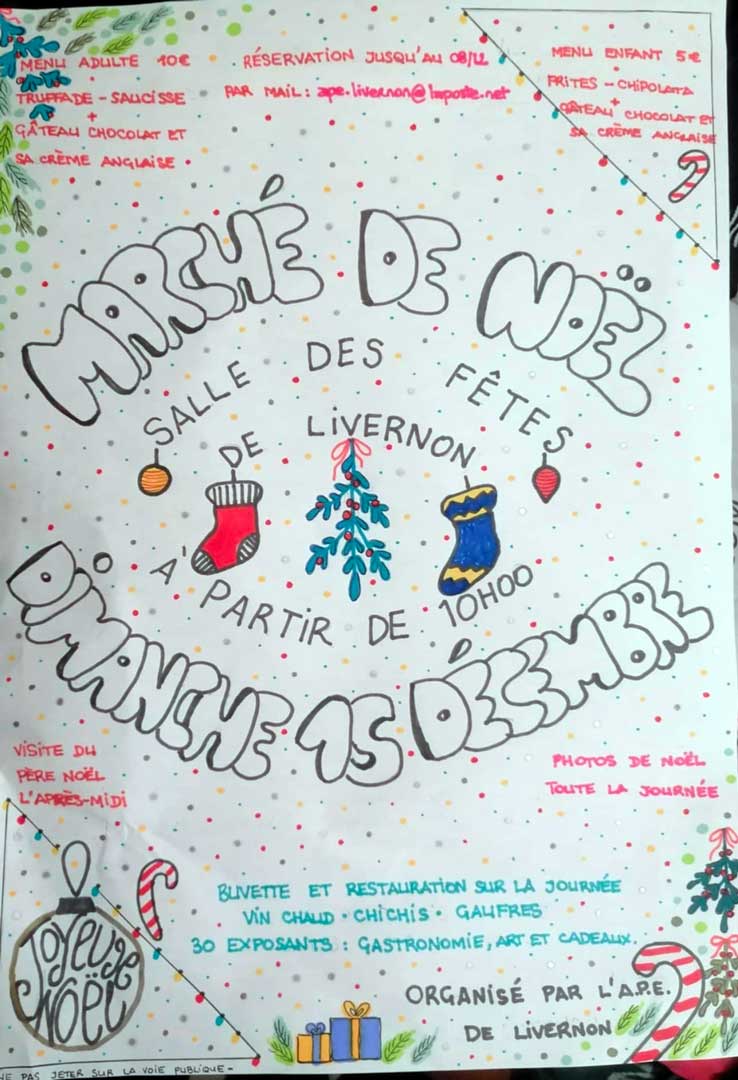 MENU ADULTE 10€
+
TRUFFADE - SAUCISSE
+
GÂTEAU CHOCOLAT ET
SA CRÈME ANGLAISE •
RÉSERVATION JUSQU'AU 08/12
PAR MAIL : ape.livernon@laposte.net
MENU ENFANT 5€
+
FRITES - CHIPOLATA
+
GÂTEAU CHOCOLAT ET
SA CRÈME ANGLAISE
MARCHÉ DE NOËL
SALLE DES FÊTES
DE LIVERNON
À PARTIR DE 10H00
DIMANCHE 15 DÉCEMBRE
VISITE DU
PÈRE NOËL
L'APRÈS-MIDI
PHOTOS DE NOËL
TOUTE LA JOURNÉE
BUVETTE ET RESTAURATION SUR LA JOURNÉE
VIN CHAUD • CHICHIS • GAUFRES
30 EXPOSANTS : GASTRONOMIE, ART ET CADEAUX.
Joyeuse
NOËL
ORGANISÉ PAR L'A.P.E.
DE LIVERNON
NE PAS JETER SUR LA VOIE PUBLIQUE -